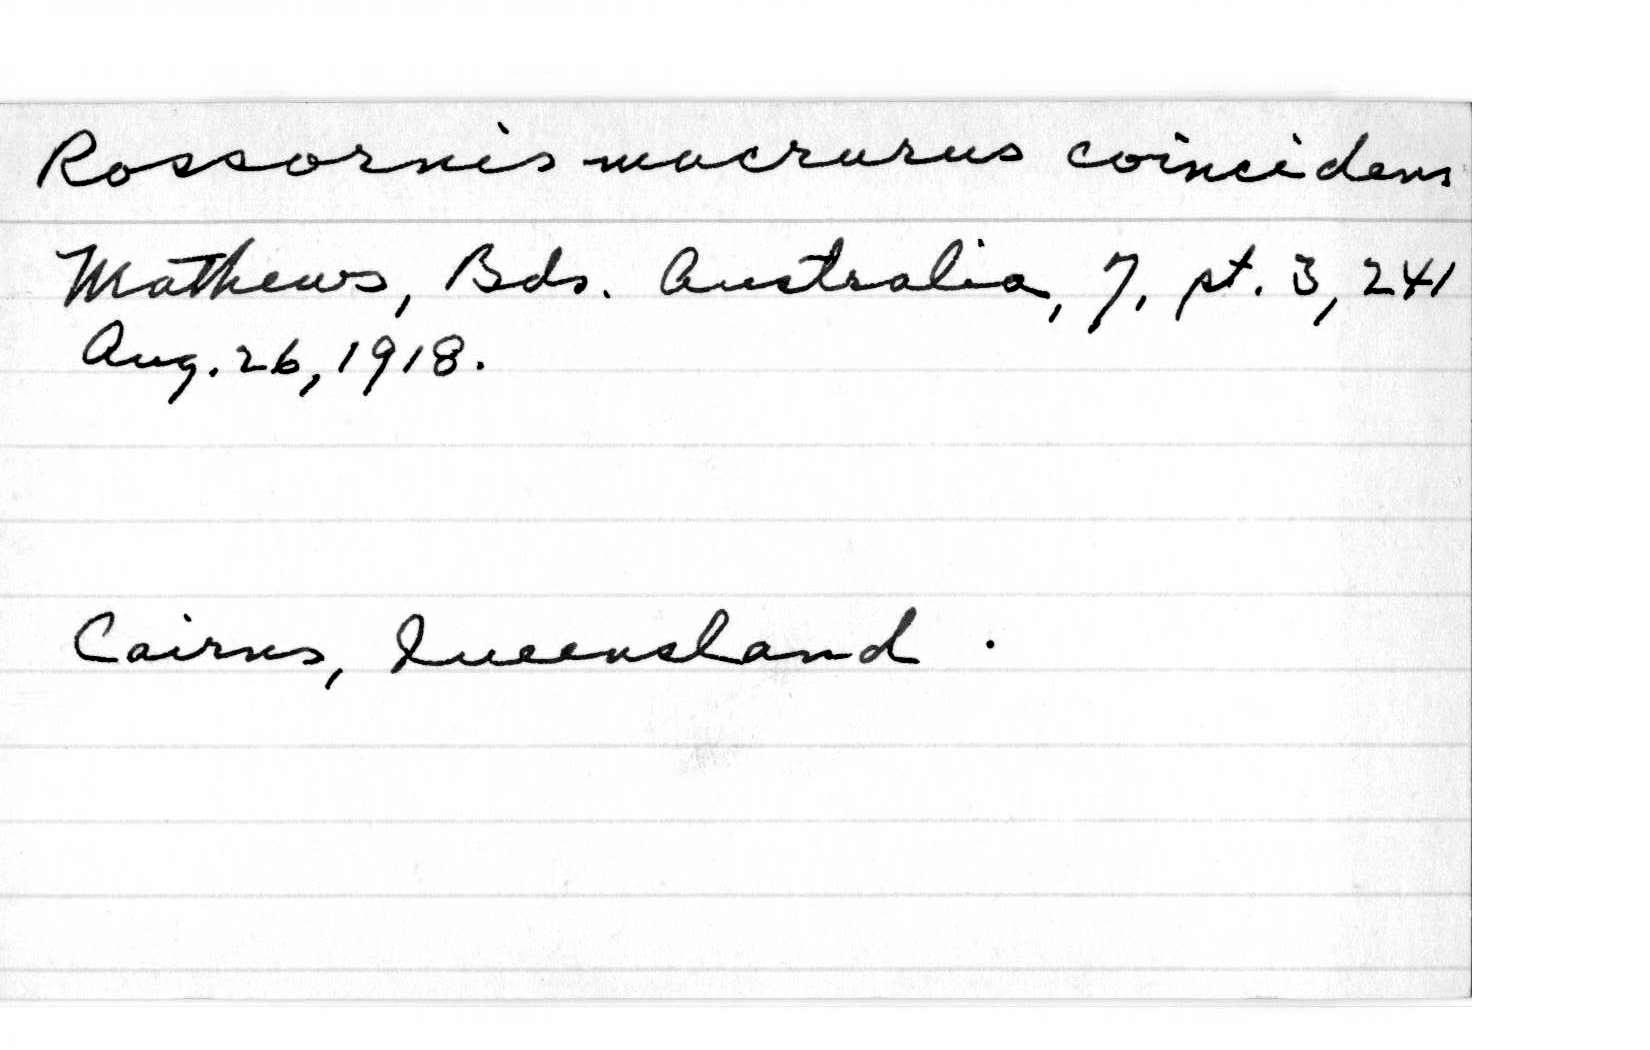 Rossornis macrurus coincidens
Mathews, Bds. Australia, 7, pt. 3, 241
Aug. 26, 1918.
Cairns, Queensland.